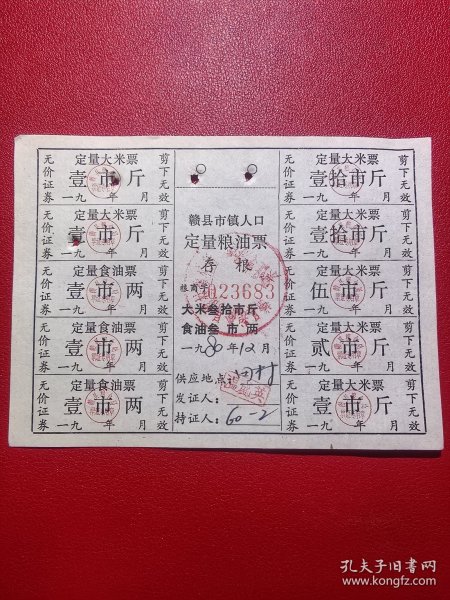 无价证券 定量大米票 剪下无效
壹市斤
一九 年 月
无价证券 定量大米票 剪下无效
壹市斤
一九 年 月
无价证券 定量食油票 剪下无效
壹市两
一九 年 月
无价证券 定量食油票 剪下无效
壹市两
一九 年 月
无价证券 定量食油票 剪下无效
壹市两
一九 年 月
赣县市镇人口
定量粮油票
存根
粮商字 0023683
大米叁拾市斤
食油叁市两
一九80年12月
供应地点：田村
发证人：
持证人：60-2
无价证券 定量大米票 剪下无效
壹拾市斤
一九 年 月
无价证券 定量大米票 剪下无效
壹拾市斤
一九 年 月
无价证券 定量大米票 剪下无效
伍市斤
一九 年 月
无价证券 定量大米票 剪下无效
贰市斤
一九 年 月
无价证券 定量大米票 剪下无效
壹市斤
一九 年 月
孔夫子旧书网
www.kongfz.com